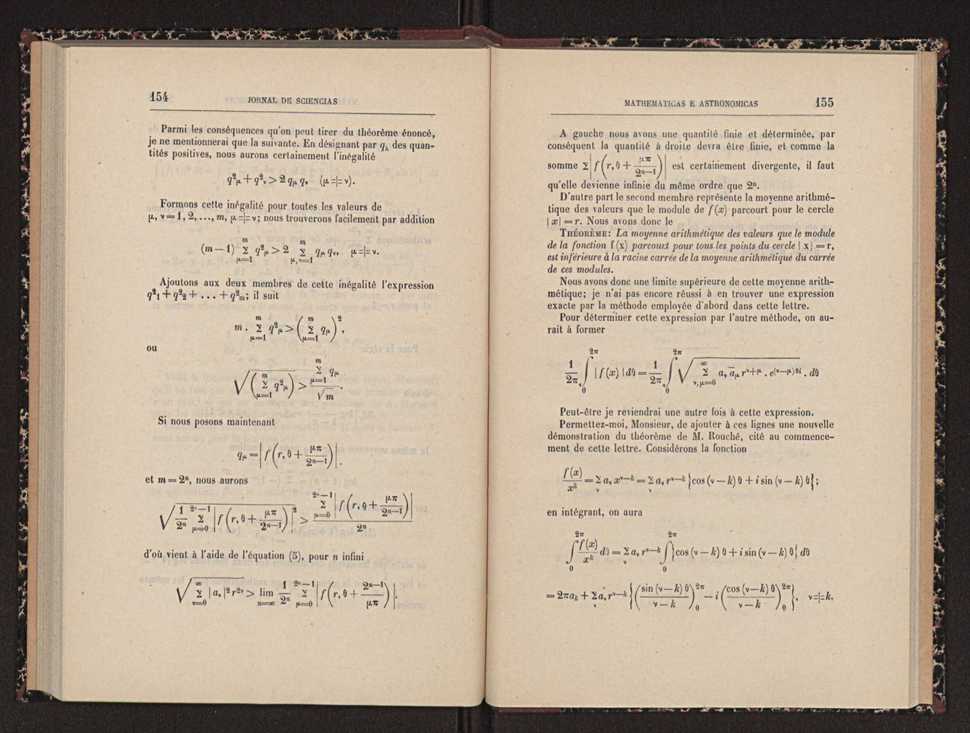 154 JORNAL DE SCIENCIAS
Parmi les conséquences qu'on peut tirer du théorème énoncé,
je ne mentionnerai que la suivante. En désignant par q_λ des quan-
tités positives, nous aurons certainement l'inégalité
q²_μ + q²_ν > 2 q_μ q_ν (μ =|= ν).
Formons cette inégalité pour toutes les valeurs de
μ, ν = 1, 2, ..., m, μ =|= ν; nous trouverons facilement par addition
(m − 1) Σ_{μ=1}^{m} q²_μ > 2 Σ_{μ,ν=1}^{m} q_μ q_ν, μ =|= ν.
Ajoutons aux deux membres de cette inégalité l'expression
q²_1 + q²_2 + ... + q²_m; il suit
m . Σ_{μ=1}^{m} q²_μ > (Σ_{μ=1}^{m} q_μ)²,
ou
√(Σ_{μ=1}^{m} q²_μ) > Σ_{μ=1}^{m} q_μ / √m.
Si nous posons maintenant
q_μ = |f(r, θ + μπ/2^{n−1})|,
et m = 2ⁿ, nous aurons
√(1/2ⁿ Σ_{μ=0}^{2ⁿ−1} |f(r, θ + μπ/2^{n−1})|²) > Σ_{μ=0}^{2ⁿ−1} |f(r, θ + μπ/2^{n−1})| / 2ⁿ
d'où vient à l'aide de l'équation (5), pour n infini
√(Σ_{ν=0}^{∞} |a_ν|² r^{2ν}) > lim_{n=∞} 1/2ⁿ Σ_{μ=0}^{2ⁿ−1} |f(r, θ + 2^{n−1}/μπ)|.
MATHEMATICAS E ASTRONOMICAS 155
A gauche nous avons une quantité finie et déterminée, par
conséquent la quantité à droite devra être finie, et comme la
somme Σ |f(r, θ + μπ/2^{n−1})| est certainement divergente, il faut
qu'elle devienne infinie du même ordre que 2ⁿ.
D'autre part le second membre représente la moyenne arithmé-
tique des valeurs que le module de f(x) parcourt pour le cercle
|x| = r. Nous avons donc le
THÉORÈME: La moyenne arithmétique des valeurs que le module
de la fonction f(x) parcourt pour tous les points du cercle |x| = r,
est inférieure à la racine carrée de la moyenne arithmétique du carrée
de ces modules.
Nous avons donc une limite supérieure de cette moyenne arith-
métique; je n'ai pas encore réussi à en trouver une expression
exacte par la méthode employée d'abord dans cette lettre.
Pour déterminer cette expression par l'autre méthode, on au-
rait à former
1/2π ∫_0^{2π} |f(x)| dθ = 1/2π ∫_0^{2π} √(Σ_{ν,μ=0}^{∞} a_ν a̅_μ r^{ν+μ} . e^{(ν−μ)θi}) . dθ
Peut-être je reviendrai une autre fois à cette expression.
Permettez-moi, Monsieur, de ajouter à ces lignes une nouvelle
démonstration du théorème de M. Rouché, cité au commence-
ment de cette lettre. Considérons la fonction
f(x)/x^k = Σ_ν a_ν x^{ν−k} = Σ_ν a_ν r^{ν−k} {cos (ν − k) θ + i sin (ν − k) θ};
en intégrant, on aura
∫_0^{2π} f(x)/x^k dθ = Σ_ν a_ν r^{ν−k} ∫_0^{2π} {cos (ν − k) θ + i sin (ν − k) θ} dθ
= 2πa_k + Σ_ν a_ν r^{ν−k} {(sin (ν−k) θ / ν − k)_0^{2π} − i (cos (ν−k) θ / ν − k)_0^{2π}}, ν =|= k.